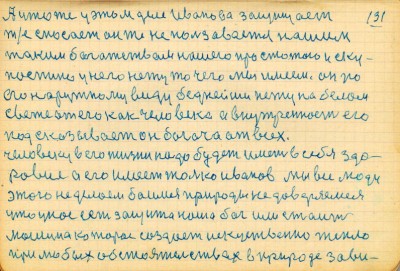 131
А итоже у этом деле Иванова защищает
т,е спосает он же не ползавается нашим
таким богатствам нашего простотою и ску-
постию у него нету то чего мы имеем. он по
его наружному виду беднейши нету на белом
свете этого как человека а внутренность его
подсказывает он богача от всех.
Человеку в его жизни надо будет иметь в себя здо-
ровие а его имеет толко иванов мы все люди
этого не делаем боимся природы не доверяемся
у нас есть защита наша бог или стаит
машина которая создает искуственно тепло
при любых обстоятелствах в природе зави-